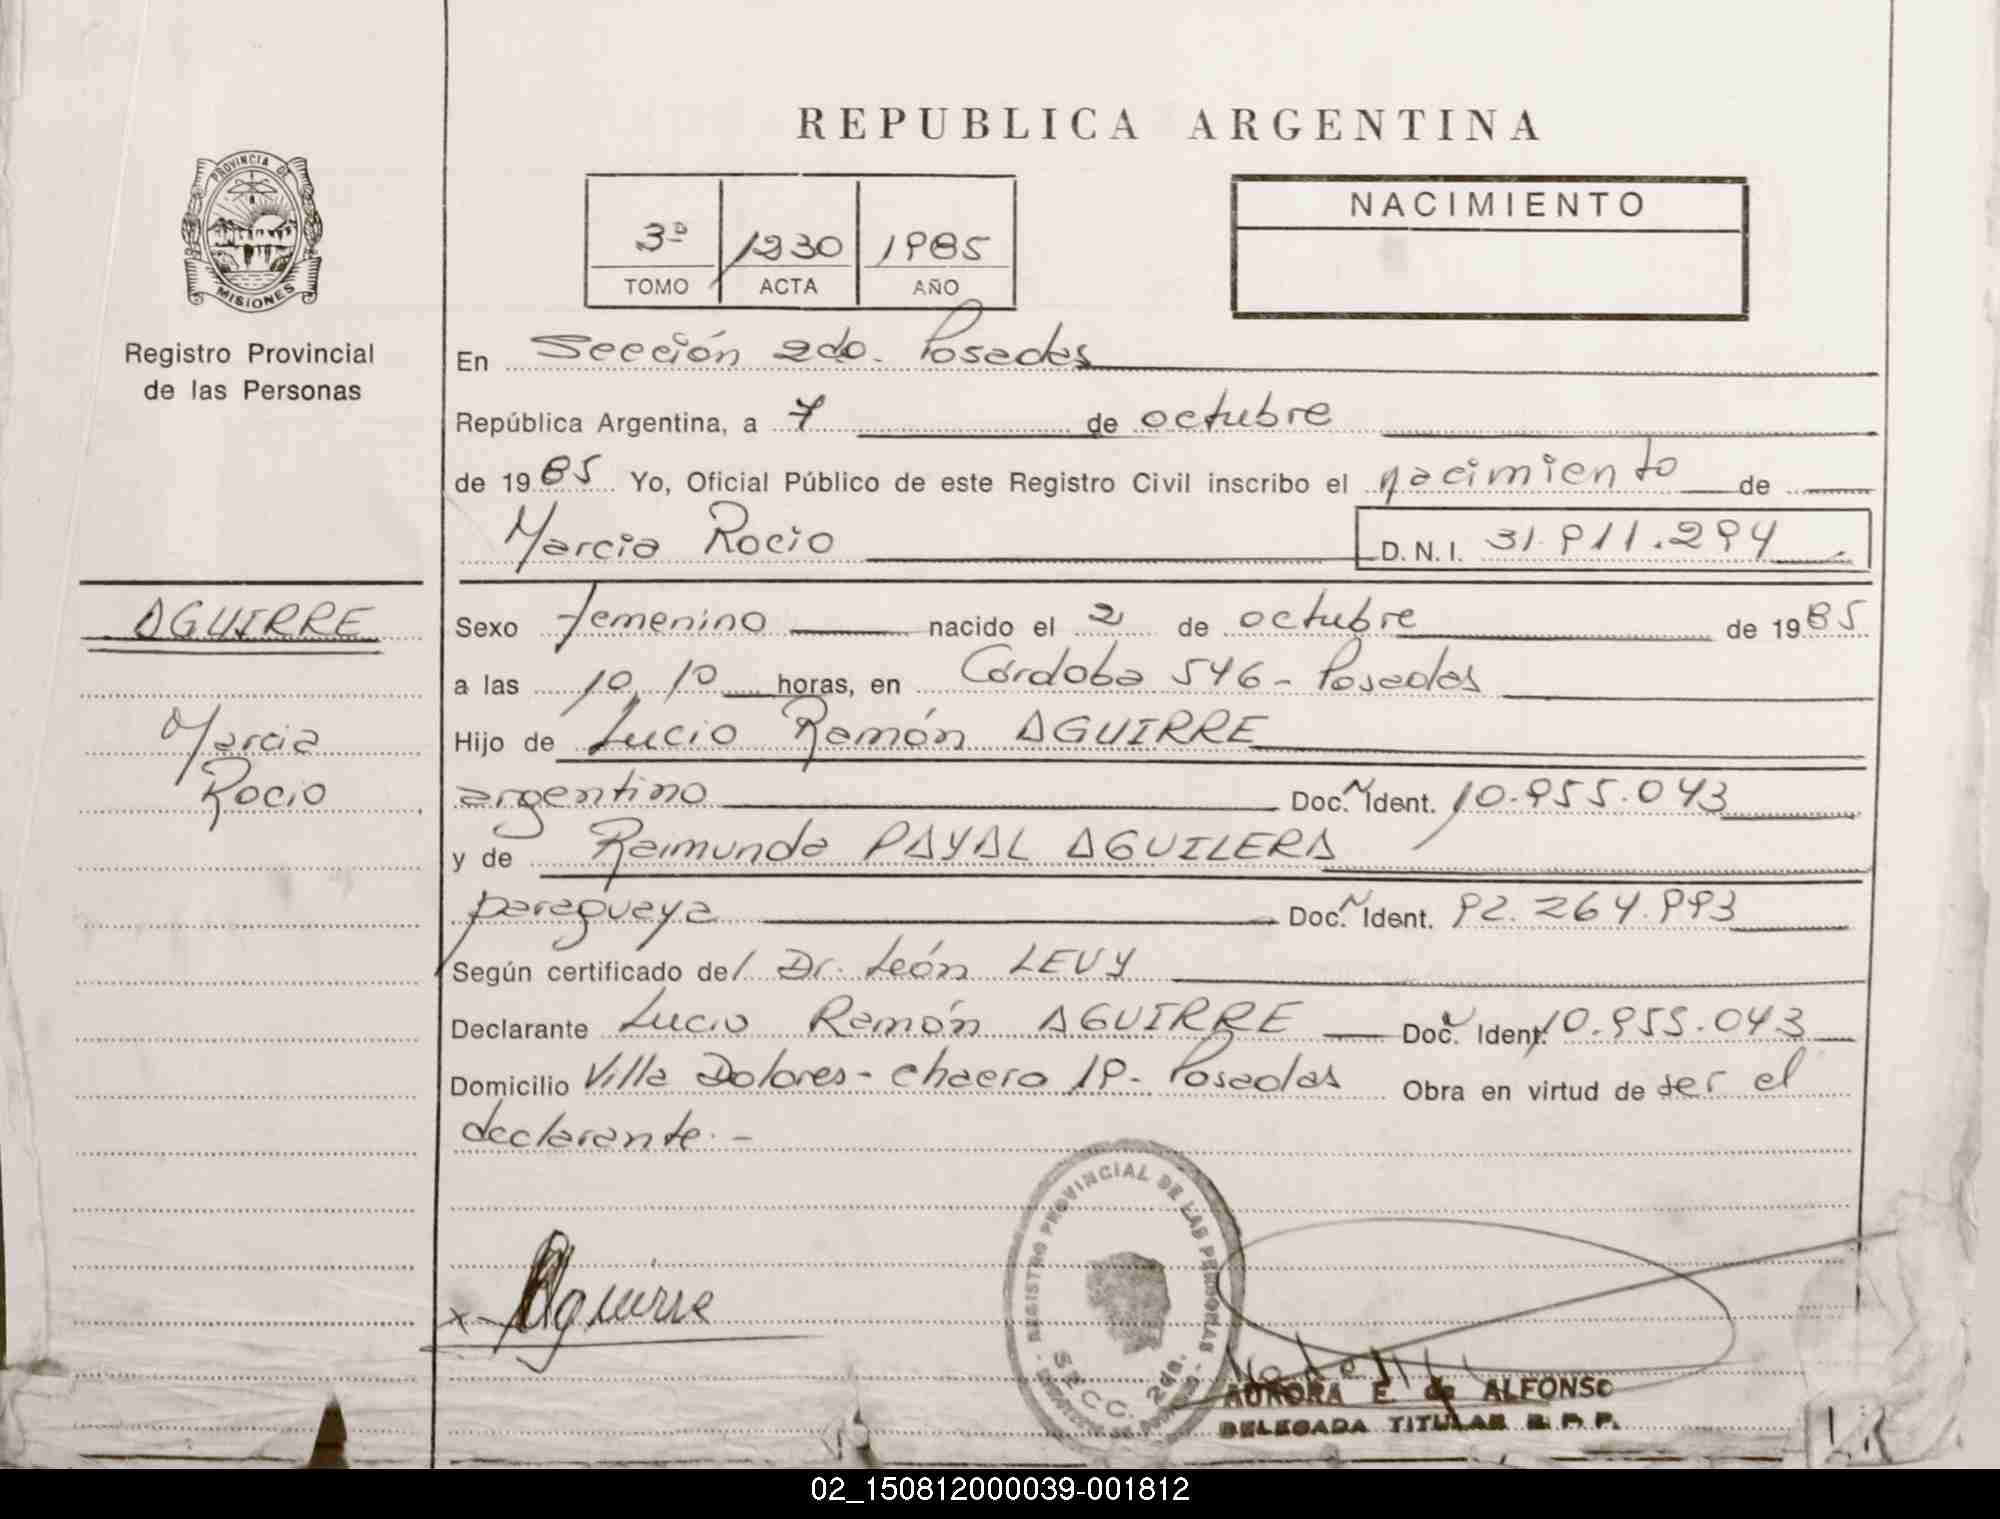 REPUBLICA ARGENTINA
PROVINCIA DE
MISIONES
Registro Provincial
de las Personas
3º 1230 1985
TOMO ACTA AÑO
NACIMIENTO
En Sección 2da. Posadas
República Argentina, a 7 de octubre
de 1985 Yo, Oficial Público de este Registro Civil inscribo el nacimiento de
Marcia Rocio D.N.I. 31.911.294
AGUIRRE
Marcia
Rocio
Sexo femenino nacido el 2 de octubre de 1985
a las 10,10 horas, en Córdoba 546 - Posadas
Hijo de Lucio Ramón AGUIRRE
argentino Doc. Ident. 10.955.043
y de Raimunda PAYAL AGUILERA
paraguaya Doc. Ident. 92.264.993
Según certificado del Dr. León LEVY
Declarante Lucio Ramón AGUIRRE Doc. Ident. 10.955.043
Domicilio Villa Dolores - chacra 19 - Posadas Obra en virtud de ser el
declarante. -
x Aguirre
REGISTRO PROVINCIAL DE LAS PERSONAS
SECC. 2da.
AURORA E. de ALFONSO
DELEGADA TITULAR R. P. P.
02_150812000039-001812